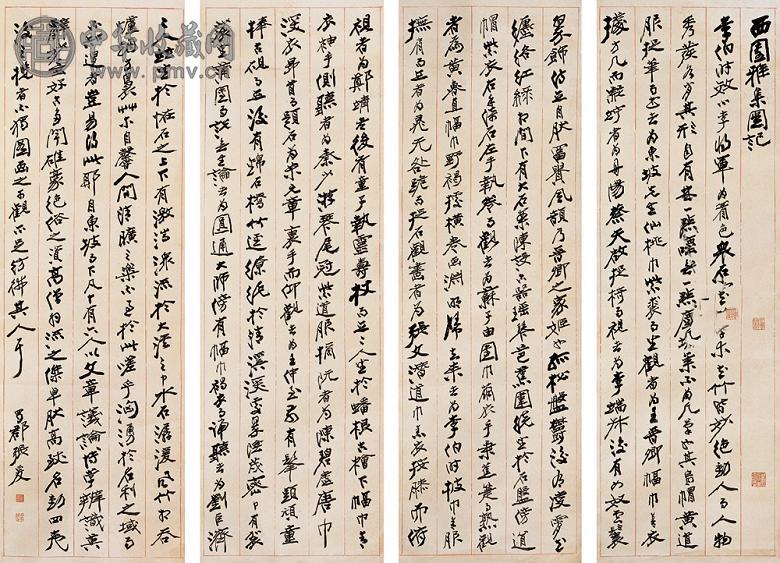 西園雅集圖記
李伯時效小李將軍為着色泉石雲物草木花竹皆妙絕動人而人物
秀發各肖其形自有林下一點塵埃氣不為凡筆也其烏帽黃道
服捉筆而書者為東坡先生仙桃巾紫裘而坐觀者為王晉卿幅巾青衣
據方几而凝竚者為丹陽蔡天啟捉椅而視者為李端叔後有女奴雲鬟
翠飾侍立自然富貴風韻乃晉卿之家姬也孤松盤鬱後有凌霄
纏絡紅綠相間下有大石案陳設古器瑤琴芭蕉圍繞坐於石盤傍道
帽紫衣右手倚石左手執卷而觀者為蘇子由團巾繭衣手秉蕉箑而熟觀
者為黃魯直幅巾野褐據橫卷畫淵明歸去來者為李伯時披巾青服
撫肩而立者為晁无咎跪而捉石觀畫者為張文潛道巾素衣按膝而俯
視者為鄭靖老後有童子執靈壽杖而立二人坐於蟠根古檜下幅巾青
衣袖手側聽者為秦少游琴尾冠紫道服摘阮者為陳碧虛唐巾
深衣昂首而題石者為米元章袖手而仰觀者為王仲至前有鬅頭頑童
捧古硯而立後有錦石橋竹逕繚繞於清溪深處翠陰茂密中有袈
裟坐蒲團而說無生論者為圓通大師傍有幅巾褐衣而諦聽者為劉巨濟
二人並坐於怪石之上下有激湍潨流於大溪之中水石潺湲風竹相吞
爐煙方裊草木自馨人間清曠之樂不過於此嗟乎洶湧於名利之域而
不知退者豈易得此耶自東坡而下凡十有六人以文章議論博學辨識英
辭妙墨好古多聞雄豪絕俗之資高僧羽流之傑卓然高致名動四夷
後之攬者不獨圖畫之可觀亦足彷彿其人耳
中华收藏网
www.sjmv.com